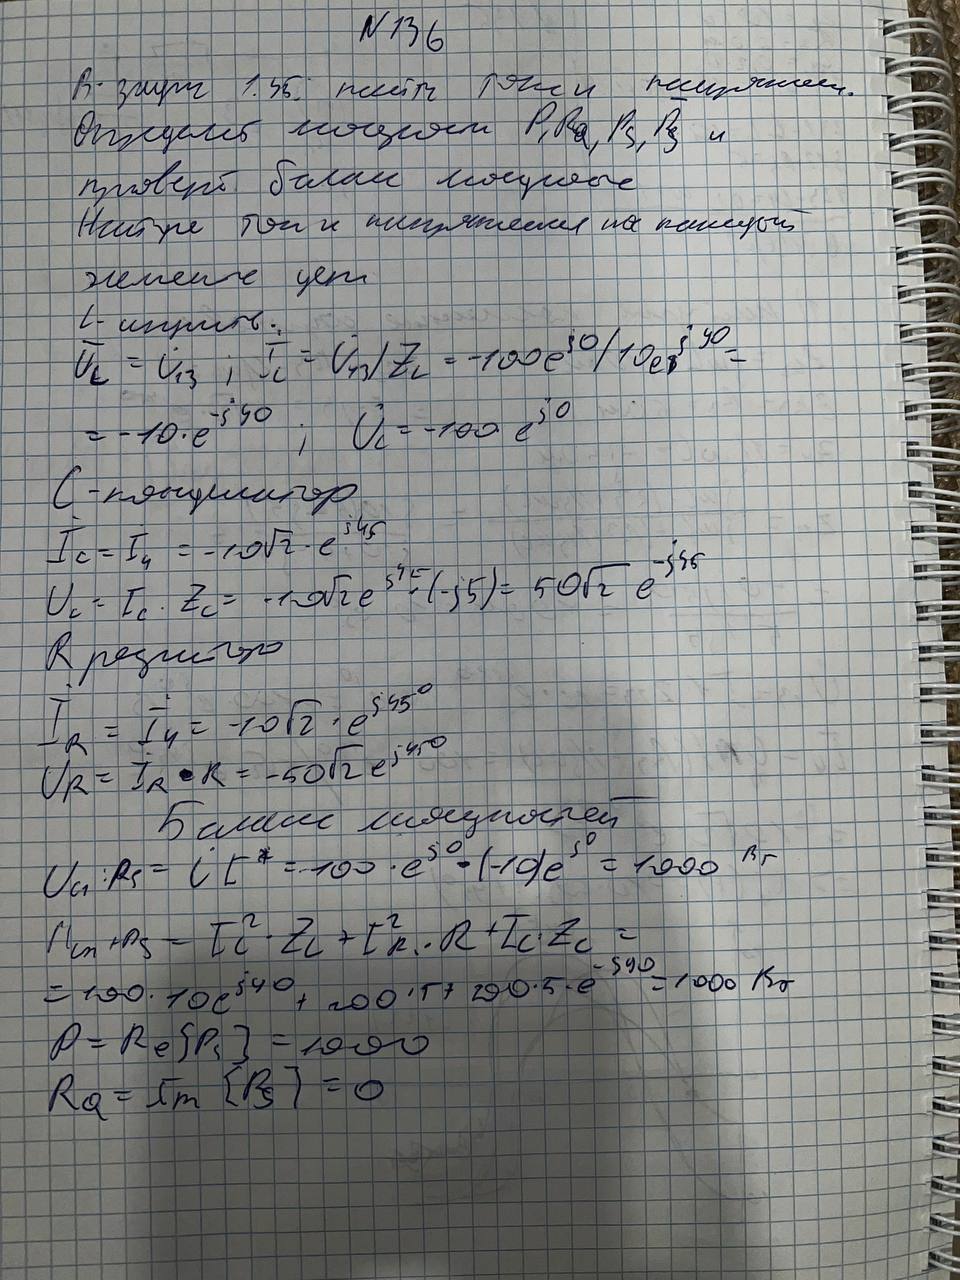 N 136
В задач 1.35. найти токи и напряжен.
Определить мощности P, PQ, Ps, P̄s и
проверить баланс мощности
Найдём токи и напряжения на каждый
элементе цепи
L-индукт.
U̇L = U̇13 ; İL = U̇13/ZL = -100e^j0/10e^j90 =
= -10·e^-j90 ; U̇L = -100 e^j0
C-конденсатор
İC = İ4 = -10√2 · e^j45
UC = IC · ZC = -10√2e^j45·(-j5) = 50√2 e^-j45
R резистор
İR = İ4 = -10√2 · e^j45°
UR = İR • R = -50√2e^j45°
Баланс мощностей
= U̇ I* = -100 · e^j0 · (-10)e^j0 = 1000 Вт
= IL² · ZL + IR² · R + IC · ZC =
= 100 · 10e^j90 + 200·5 + 200·5·e^-j90 = 1000 Вт
P = Re{Ps} = 1000
PQ = Im {Ps} = 0